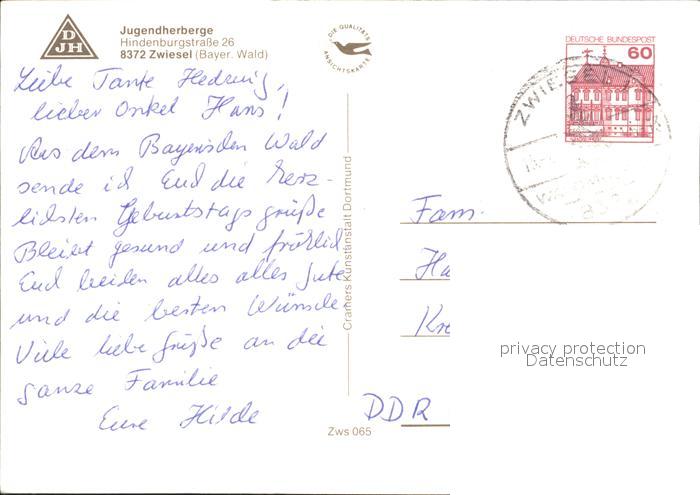 D
JH
Jugendherberge
Hindenburgstraße 26
8372 Zwiesel (Bayer. Wald)
DIE QUALITÄTS
ANSICHTSKARTE
DEUTSCHE BUNDESPOST
60
ZWIESEL 1
Liebe Tante Hedwig,
lieber Onkel Hans!
Aus dem Bayerischen Wald
sende ich Euch die herz-
lichsten Geburtstagsgrüße
Bleibt gesund und fröhlich
Euch beiden alles alles Gute
und die besten Wünsche
Viele liebe Grüße an die
ganze Familie
Eure Hilde
Cramers Kunstanstalt Dortmund
Zws 065
Fam.
Ha
Kre
DDR
privacy protection
Datenschutz